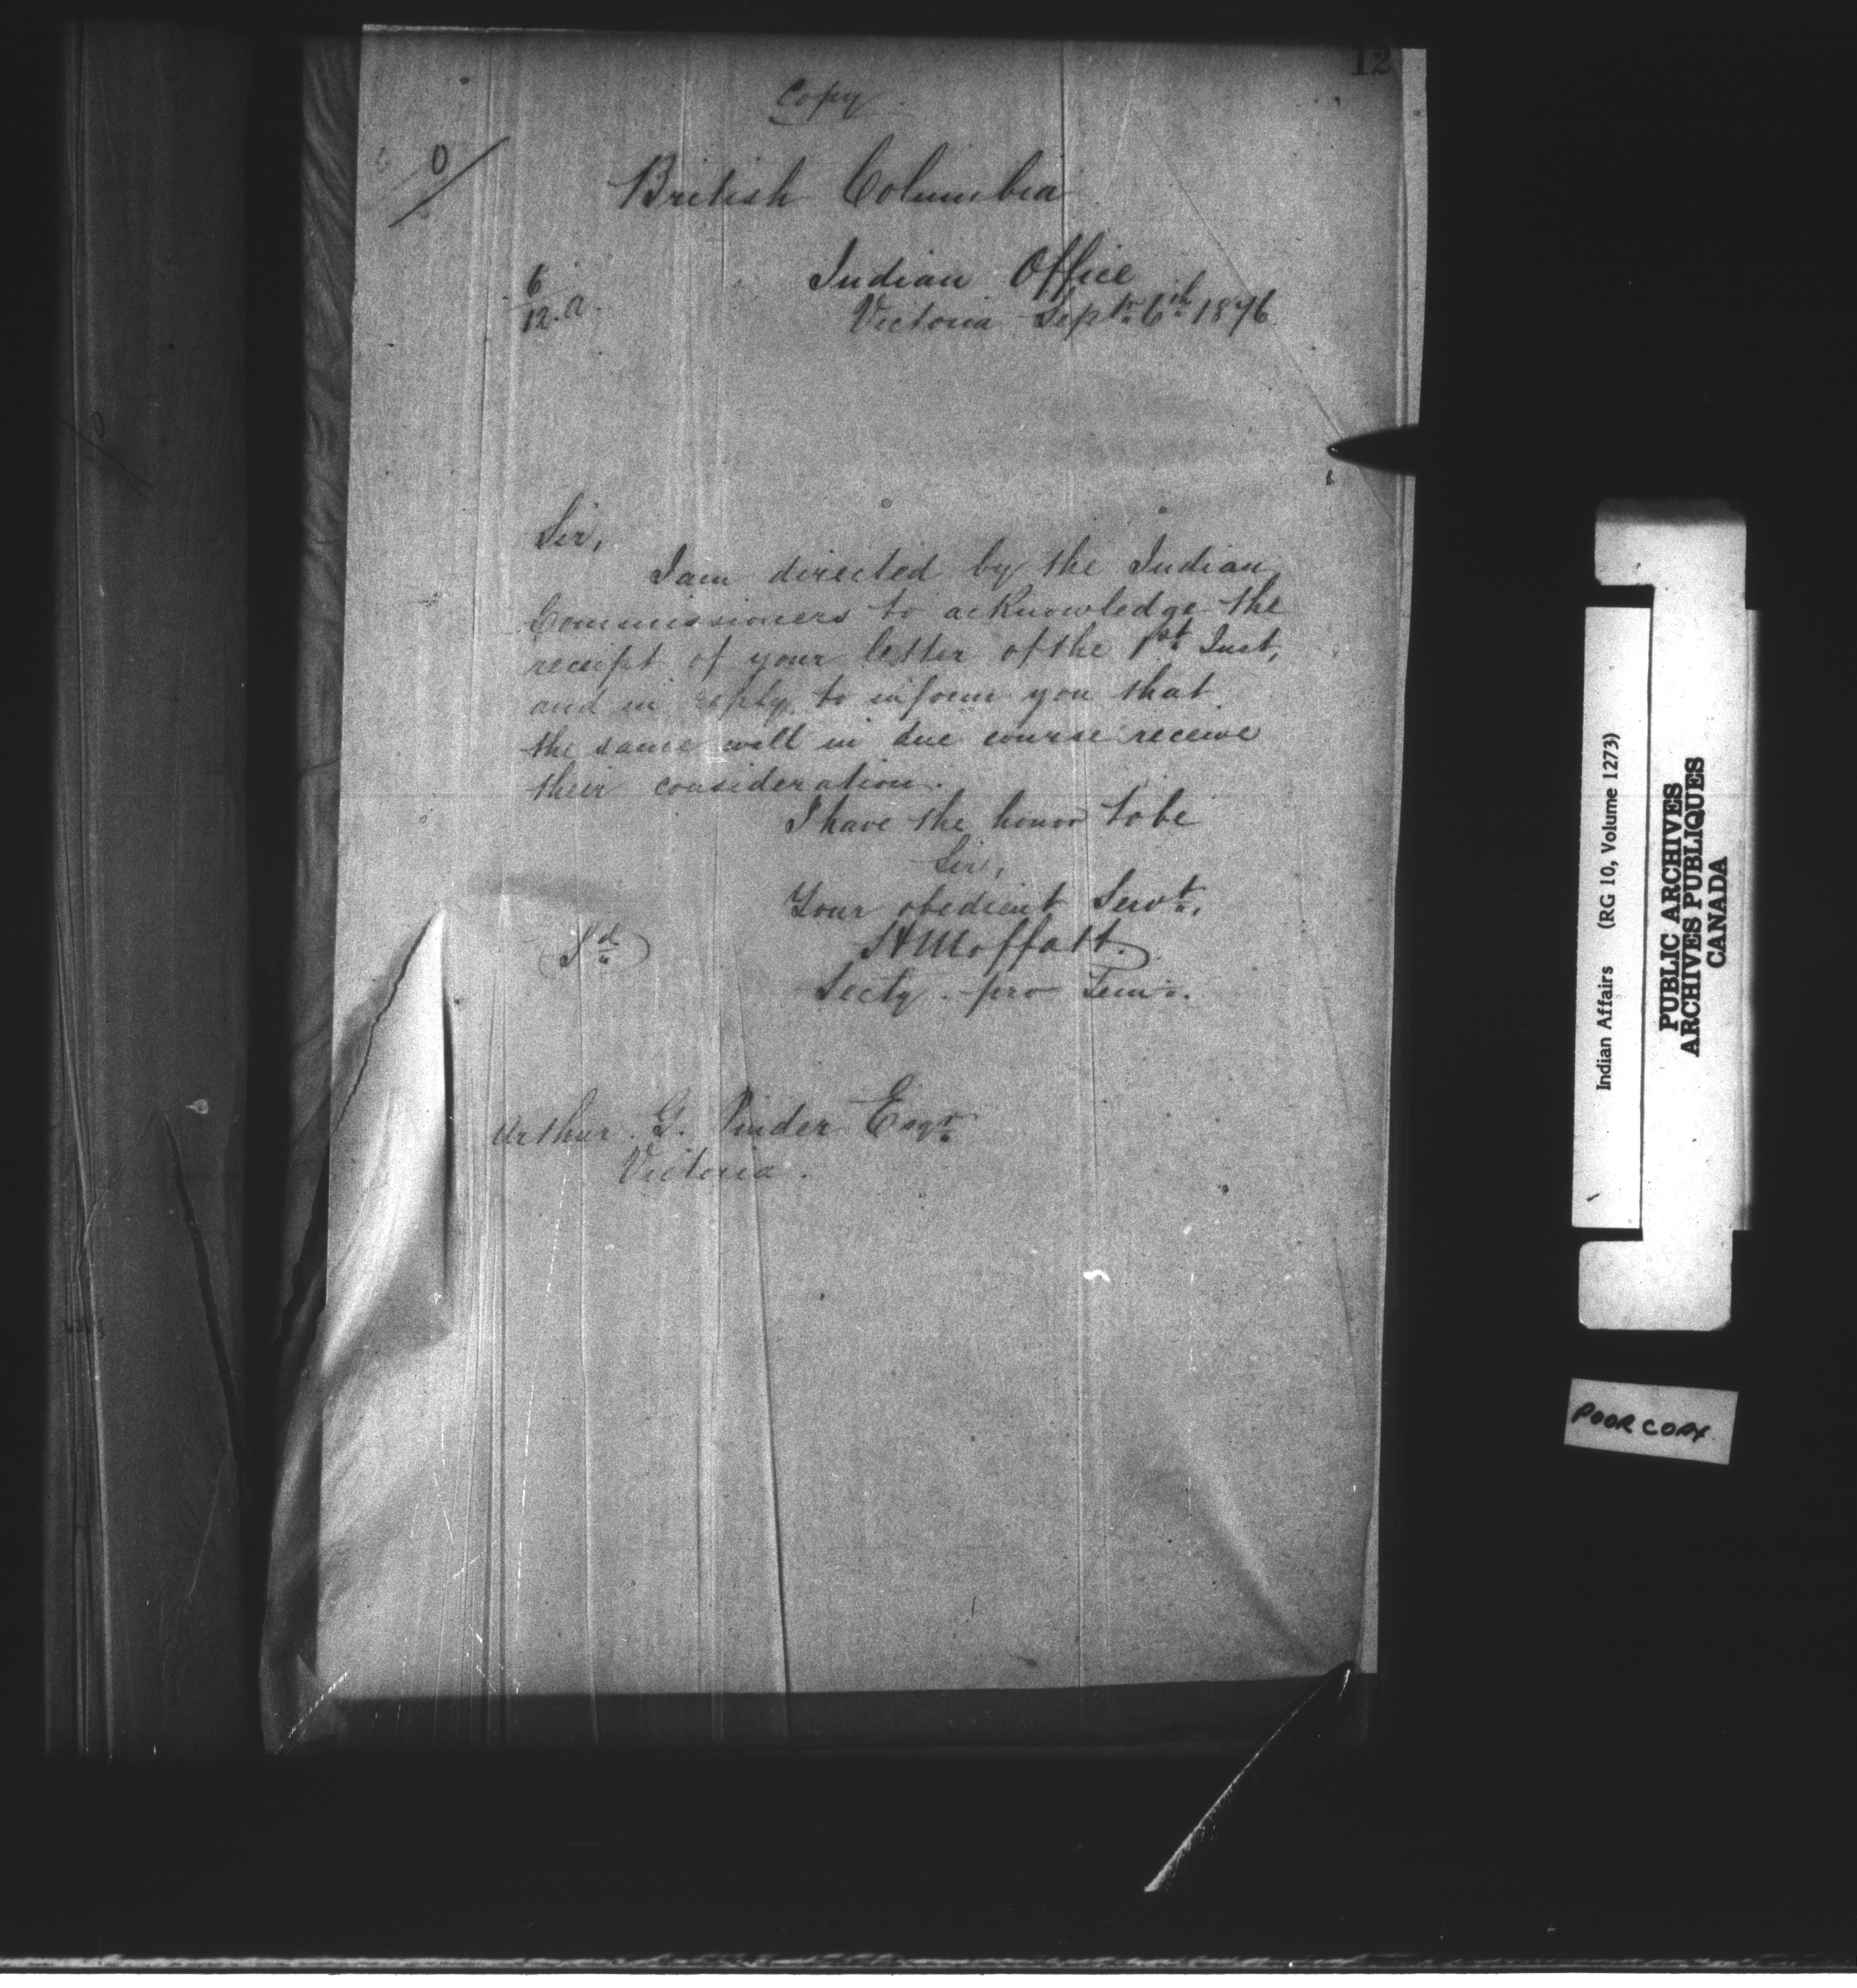 12
Copy
0/
British Columbia
Indian Office
6/12.a.
Victoria Septr. 6th. 1876
Sir,
I am directed by the Indian
Commissioners to acknowledge the
receipt of your letter of the 1st. Inst,
and in reply to inform you that
the same will in due course receive
their consideration.
I have the honor to be
Sir,
Your obedient Servt.,
(Sd) H Moffatt.
Secty. pro Tem.
Arthur. G. Pinder Esqr.
Victoria.
Indian Affairs (RG 10, Volume 1273)
PUBLIC ARCHIVES
ARCHIVES PUBLIQUES
CANADA
POOR COPY.